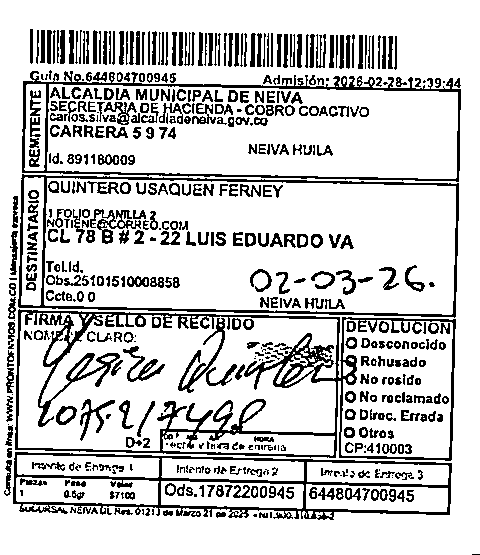 Guia No.644804700945
Admisión: 2026-02-28-12:39:44
REMITENTE
ALCALDIA MUNICIPAL DE NEIVA
SECRETARIA DE HACIENDA - COBRO COACTIVO
carlos.silva@alcaldiadeneiva.gov.co
CARRERA 5 9 74
NEIVA HUILA
Id. 891180009
DESTINATARIO
QUINTERO USAQUEN FERNEY
1 FOLIO PLANILLA 2
NOTIENE@CORREO.COM
CL 78 B # 2 - 22 LUIS EDUARDO VA
Tel.Id.
Obs.25101510008858
Ccte.0 0
02-03-26.
NEIVA HUILA
FIRMA Y SELLO DE RECIBIDO
NOMBRE CLARO:
D+2
HORA
Fecha y hora de entrega
DEVOLUCION
Desconocido
Rehusado
No reside
No reclamado
Direc. Errada
Otros
CP:410003
Intento de Entrega 1
Intento de Entrega 2
Intento de Entrega 3
Piezas Peso Valor
1 0.5gr $7100
Ods.17872200945
644804700945
Consulta en linea: WWW.PRONTOENVIOS.COM.CO | Mensajeria expresa